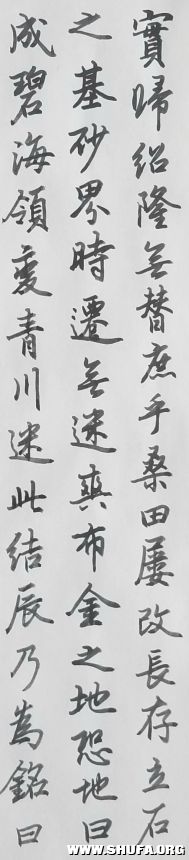 實歸紹隆無替庶乎桑田屢改長存立石
之基砂界時遷無迷真布金之地恐地曰
成碧海領變青川迷此結辰乃為銘曰
WWW.SHUFA.ORG